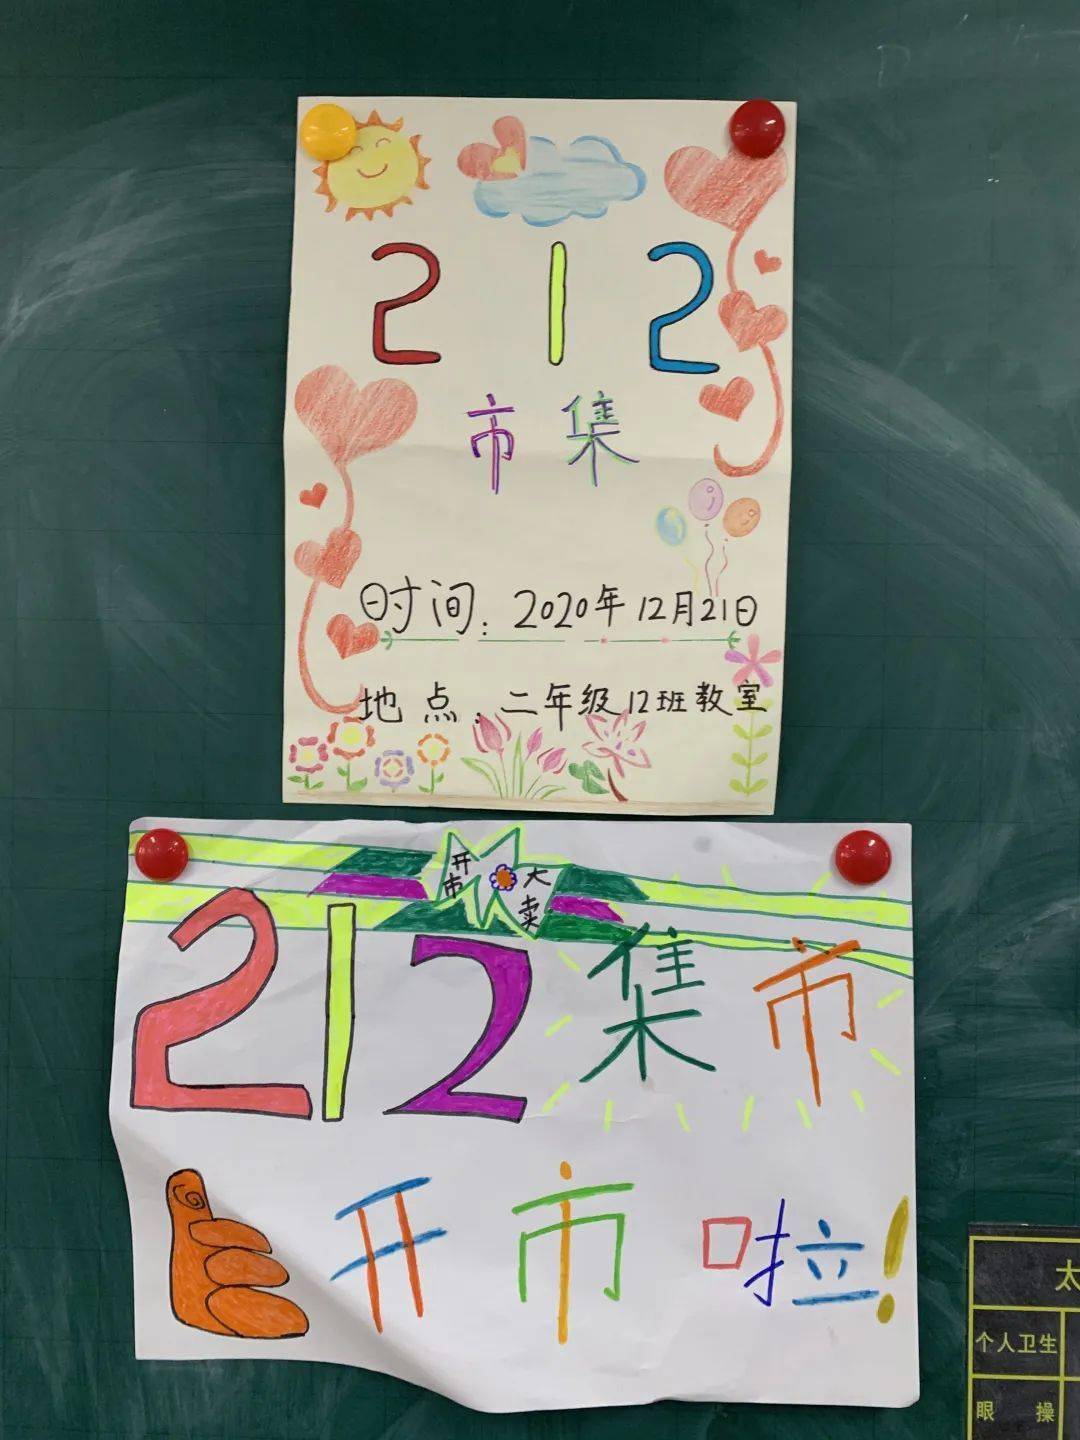 212
市集
时间：2020年12月21日
地点：二年级12班教室
开市大卖
212集市
开市啦！
太
个人卫生
眼操